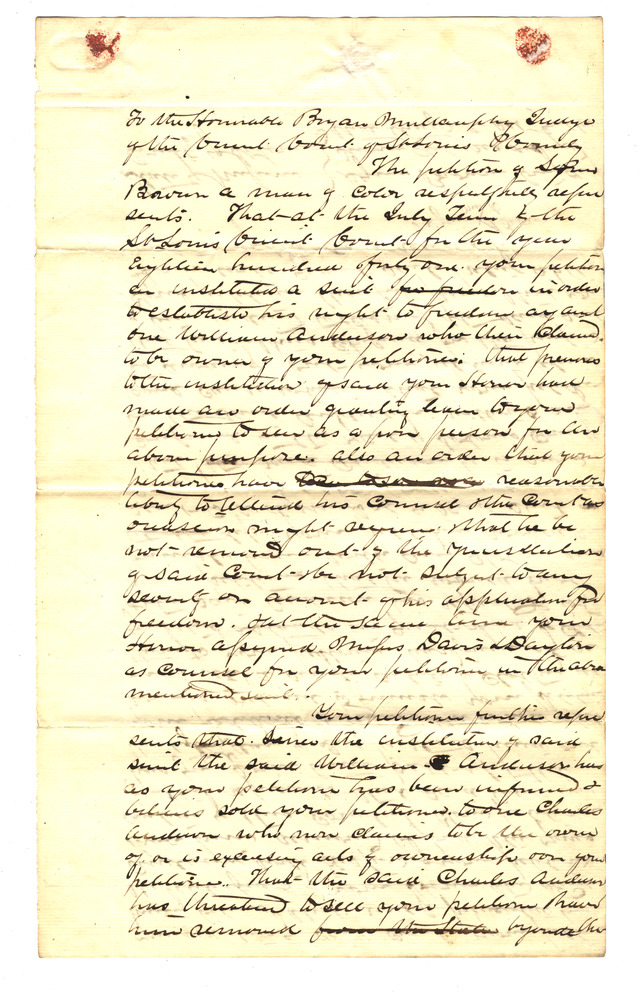 To the Honorable Bryan Mullanphy Judge
of the Circuit Court of St Louis County
The petition of John
Brown a man of color respectfully repre
sents. That at the July Term of the
St Louis Circuit Court for the year
Eighteen hundred & forty one your petition
er instituted a suit for freedom in order
to establish his right to freedom against
one William Anderson who then claimed
to be owner of your petitioner. that previous
to the institution of said your Honor had
made an order granting leave to your
petitioner to sue as a poor person for the
above purpose. also an order that your
petitioner have reasonable
liberty to attend his counsel & the court as
occasion might require & that he be
not removed out of the jurisdiction
of said Court & be not subject to any
severity on account of his application for
freedom. & at the same time your
Honor assigned Messrs Davis & Dayton
as counsel for your petitioner in the above
mentioned suit.
Your petitioner further repre
sents that since the institution of said
suit the said William Anderson has
as your petitioner has been informed &
believes sold your petitioner to one Charles
Anderson who now claims to be the owner
of or is exercising acts of ownership over your
petitioner. That the said Charles Anderson
has threatened to sell your petitioner & have
him removed from the State beyond the